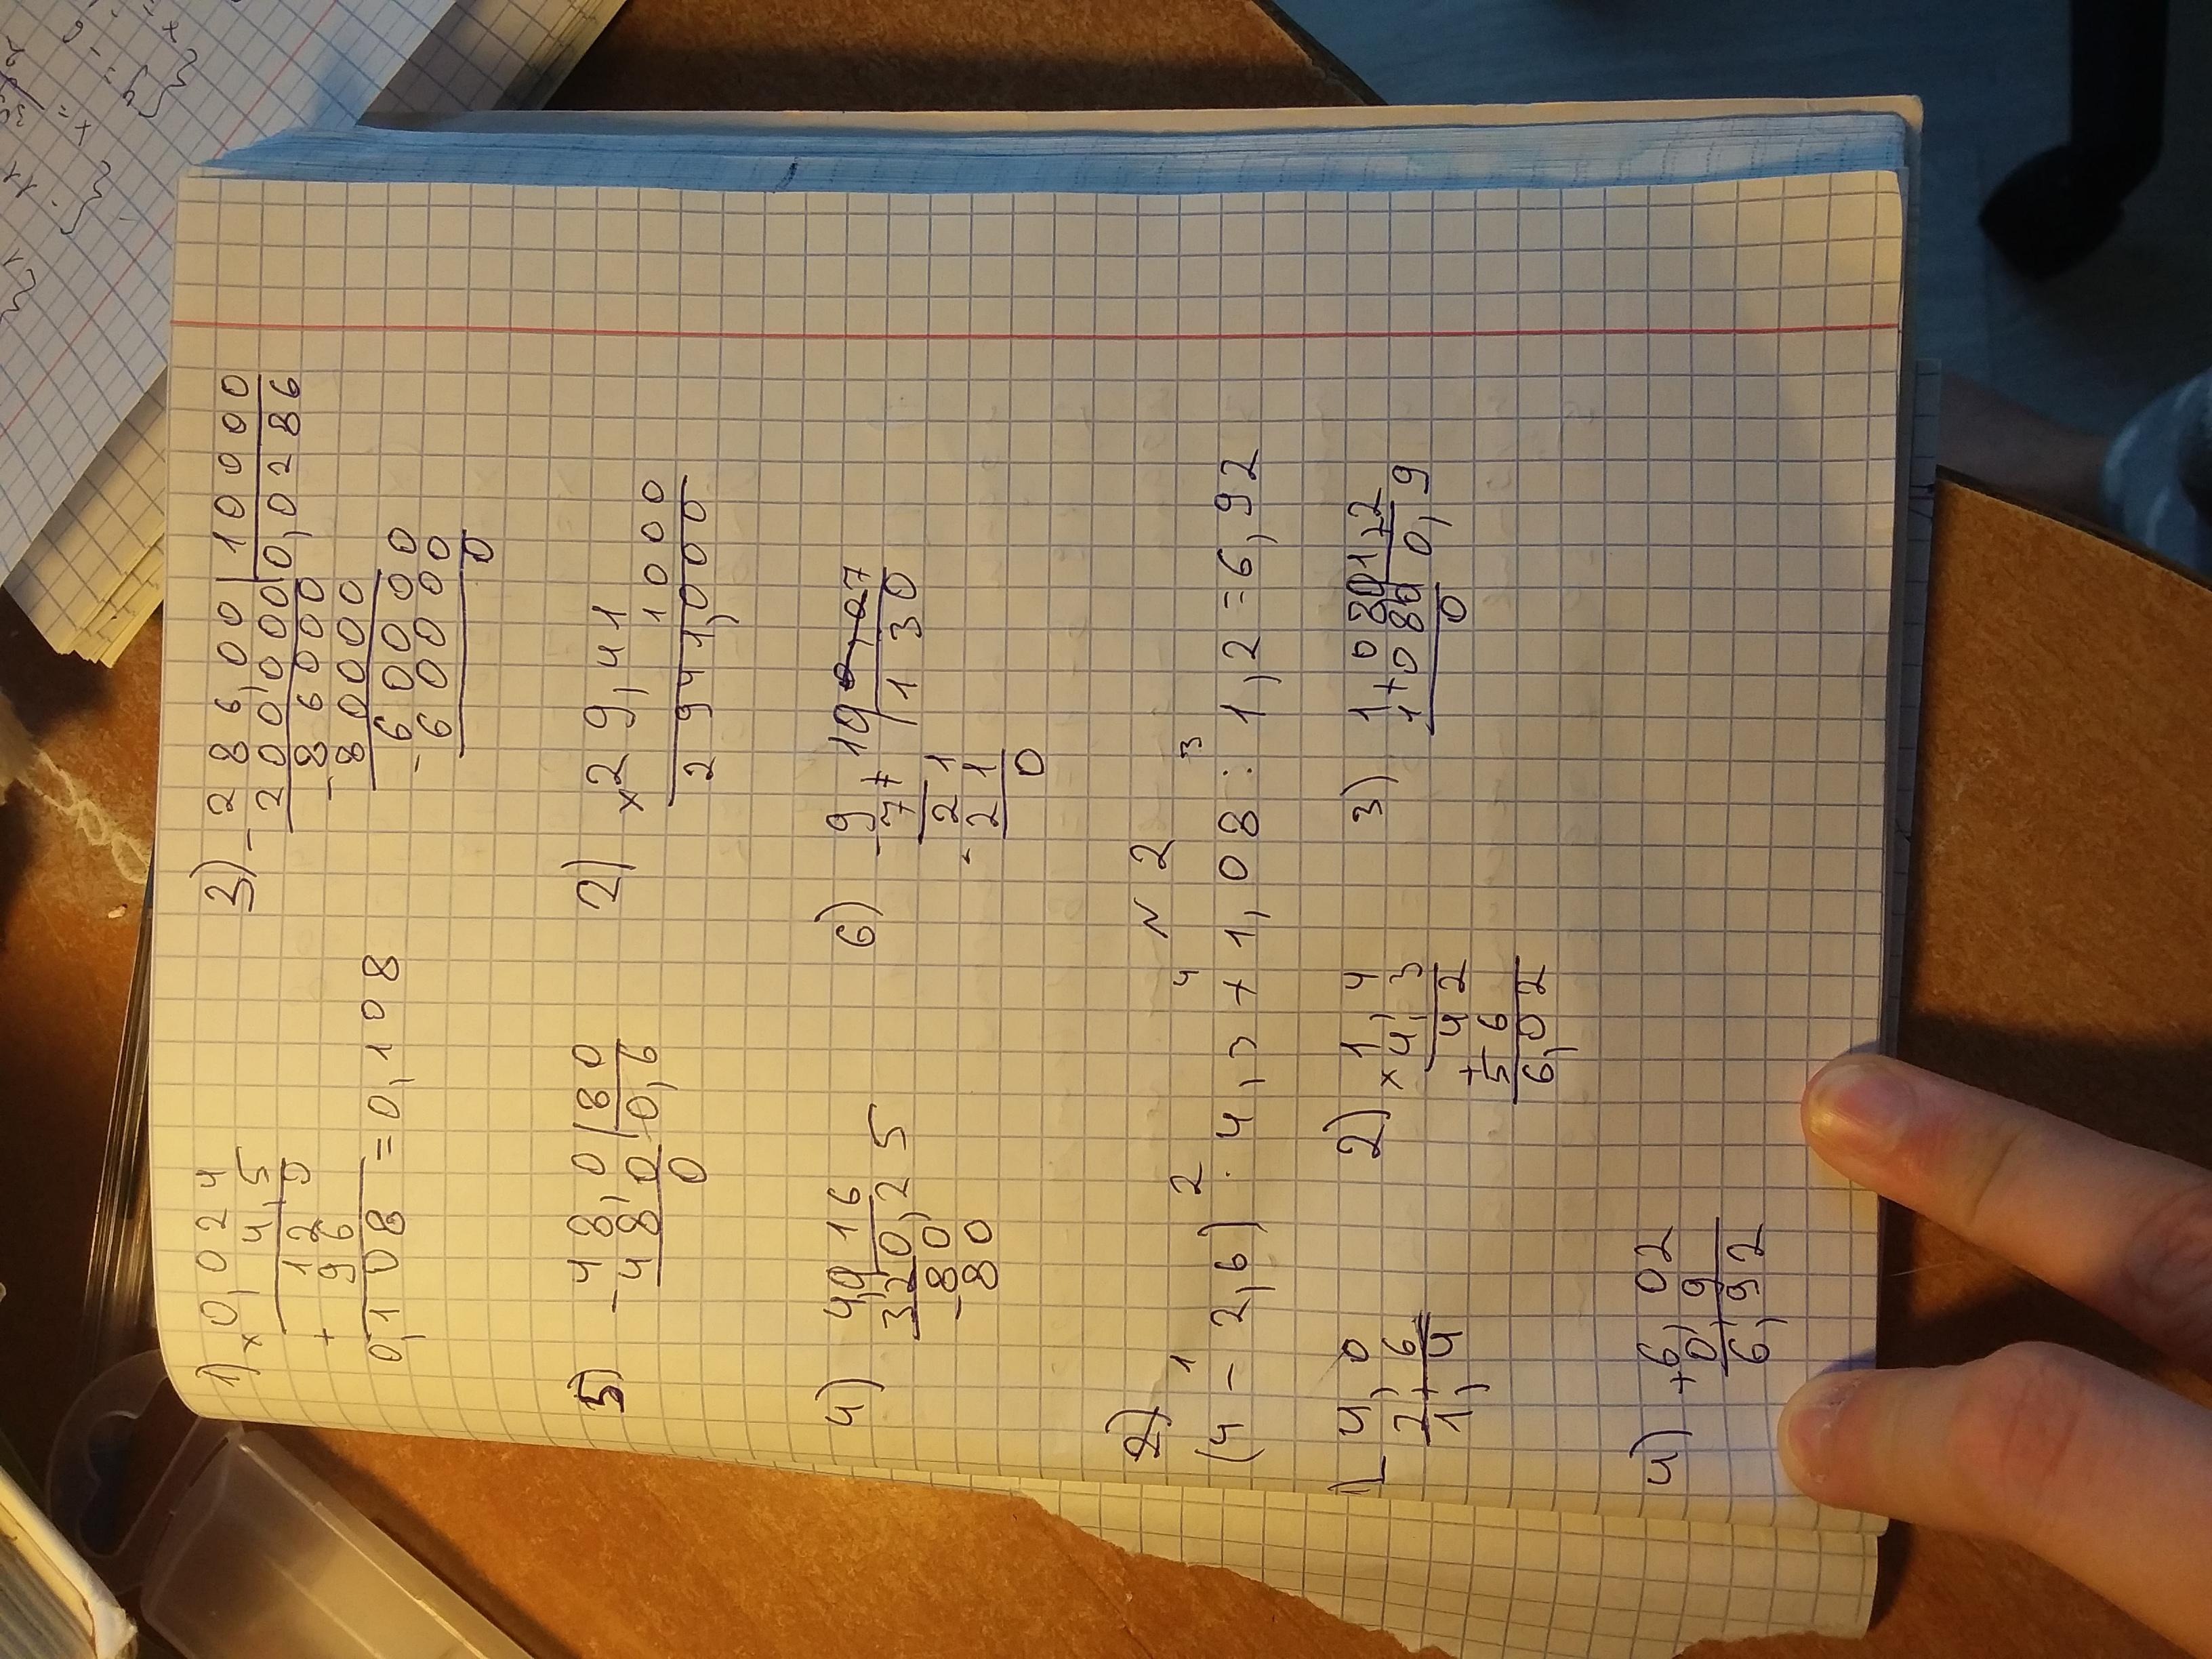 1) × 0,024
4,5
120
+ 96
0,108 = 0,108
3) - 286,00 | 10000
200,000 | 0,0286
- 86000
80000
- 60000
- 60000
0
5) - 48,0 | 80
480 | 0,6
0
2) × 29,41
1000
2941,000
4) 4,0 | 16
32 | 0,25
- 80
80
6) - 9,10 | 7
7 | 130
- 21
21
0
2) N 2
1 2 4 3
(4 - 2,6) · 4,3 + 1,08 : 1,2 = 6,92
1) - 4,0
2,6
1,4
2) × 1,4
4,3
42
+ 56
6,02
3) 1,08 | 1,2
1 08 | 0,9
0
4) + 6,02
0,9
6,92